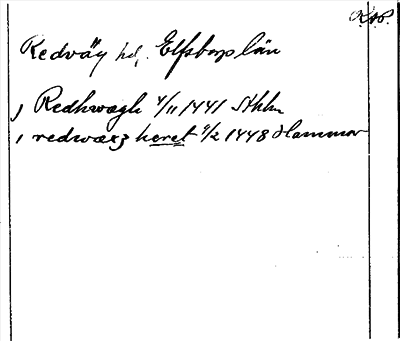 Redväg hd. Elfsborgs län
, Redhwægh 4/11 1441 Sthlm
, redwæxz heret 4/2 1448 Hammar